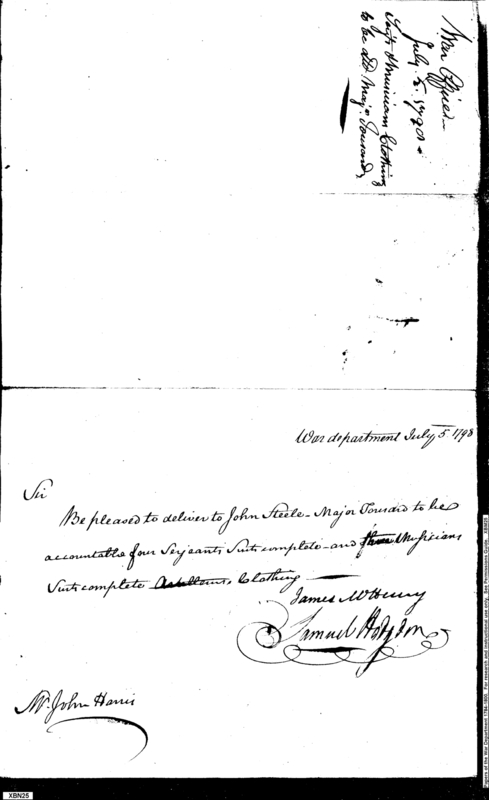 War Office
July 5. 1798
Suits Musician Clothing
to be dld Majr. Tousard
War department July 5 1798
Sir
Be pleased to deliver to John Steele - Major Tousard to be
accountable four Serjeants Suits complete - and three Musicians
Suits complete Clothing
James McHenry
Samuel Hodgdon
Mr. John Harris
XBN25
Papers of the War Department 1784-1800. For research and non-commercial use only. See Permissions Guide. XBN25